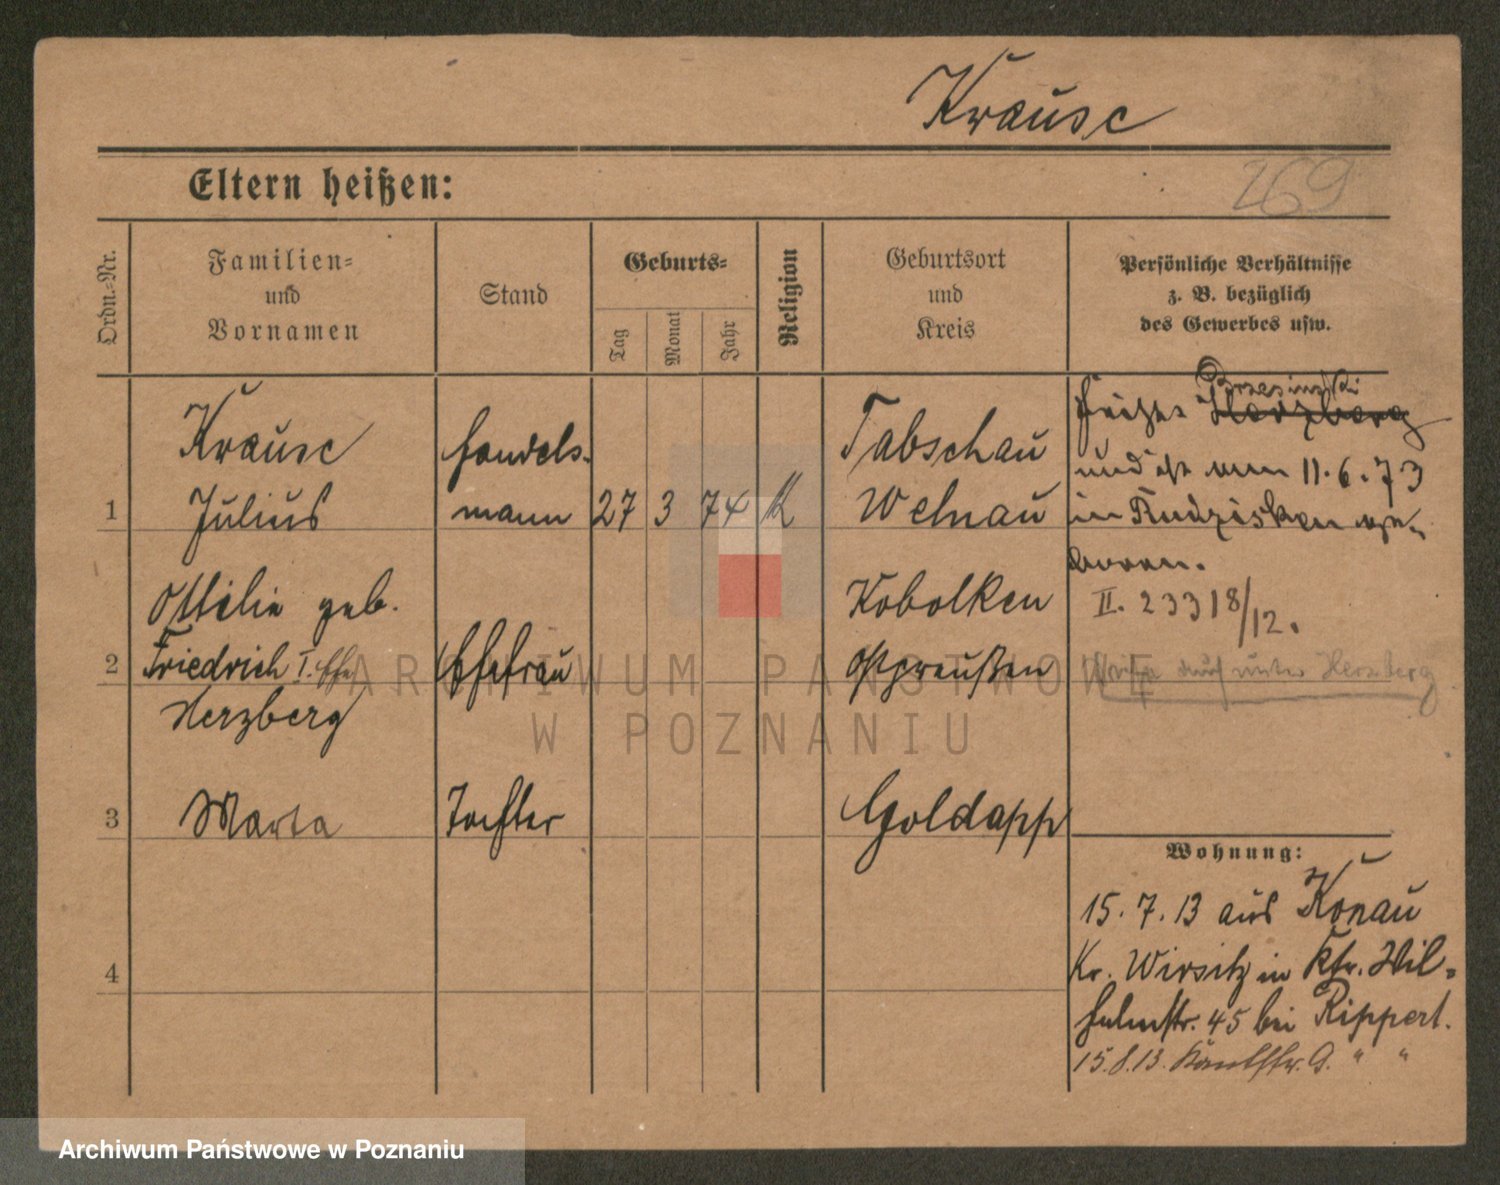 Krause
Eltern heißen:
269
Ordn.-Nr.
Familien-
und
Vornamen
Stand
Geburts-
Tag
Monat
Jahr
Religion
Geburtsort
und
Kreis
Persönliche Verhältnisse
z. B. bezüglich
des Gewerbes usw.
1
Krause
Julius
Handels-
mann
27
3
74
K
Tabschau
Welnau
Brzesinski
Herzberg
und ist am 11.6.73
in Rudzisken ge-
boren.
II. 23318/12.
2
Ottilie geb.
Friedrich I. Ehe
Herzberg
Ehefrau
Kobolken
Ostpreußen
Siehe auch unter Herzberg
3
Marta
Tochter
Goldapp
4
Wohnung:
15.7.13 aus Konau
Kr. Wirsitz in Ktr. Wil-
helmstr. 45 bei Rippert.
15.8.13. 9. " "
ARCHIWUM PAŃSTWOWE
W POZNANIU
Archiwum Państwowe w Poznaniu